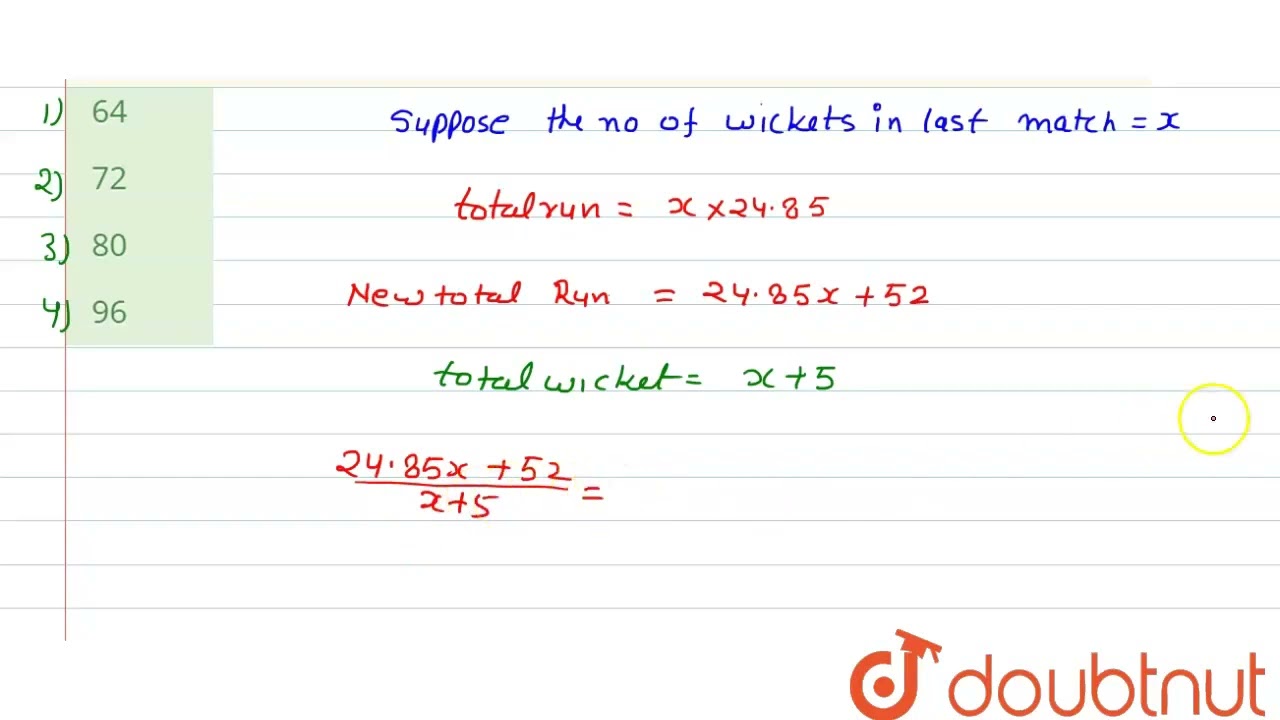 1) 64
2) 72
3) 80
4) 96
Suppose the no of wickets in last match = x
total run = x × 24.85
New total Run = 24.85x + 52
total wicket = x + 5
24.85x + 52
x + 5
=
doubtnut